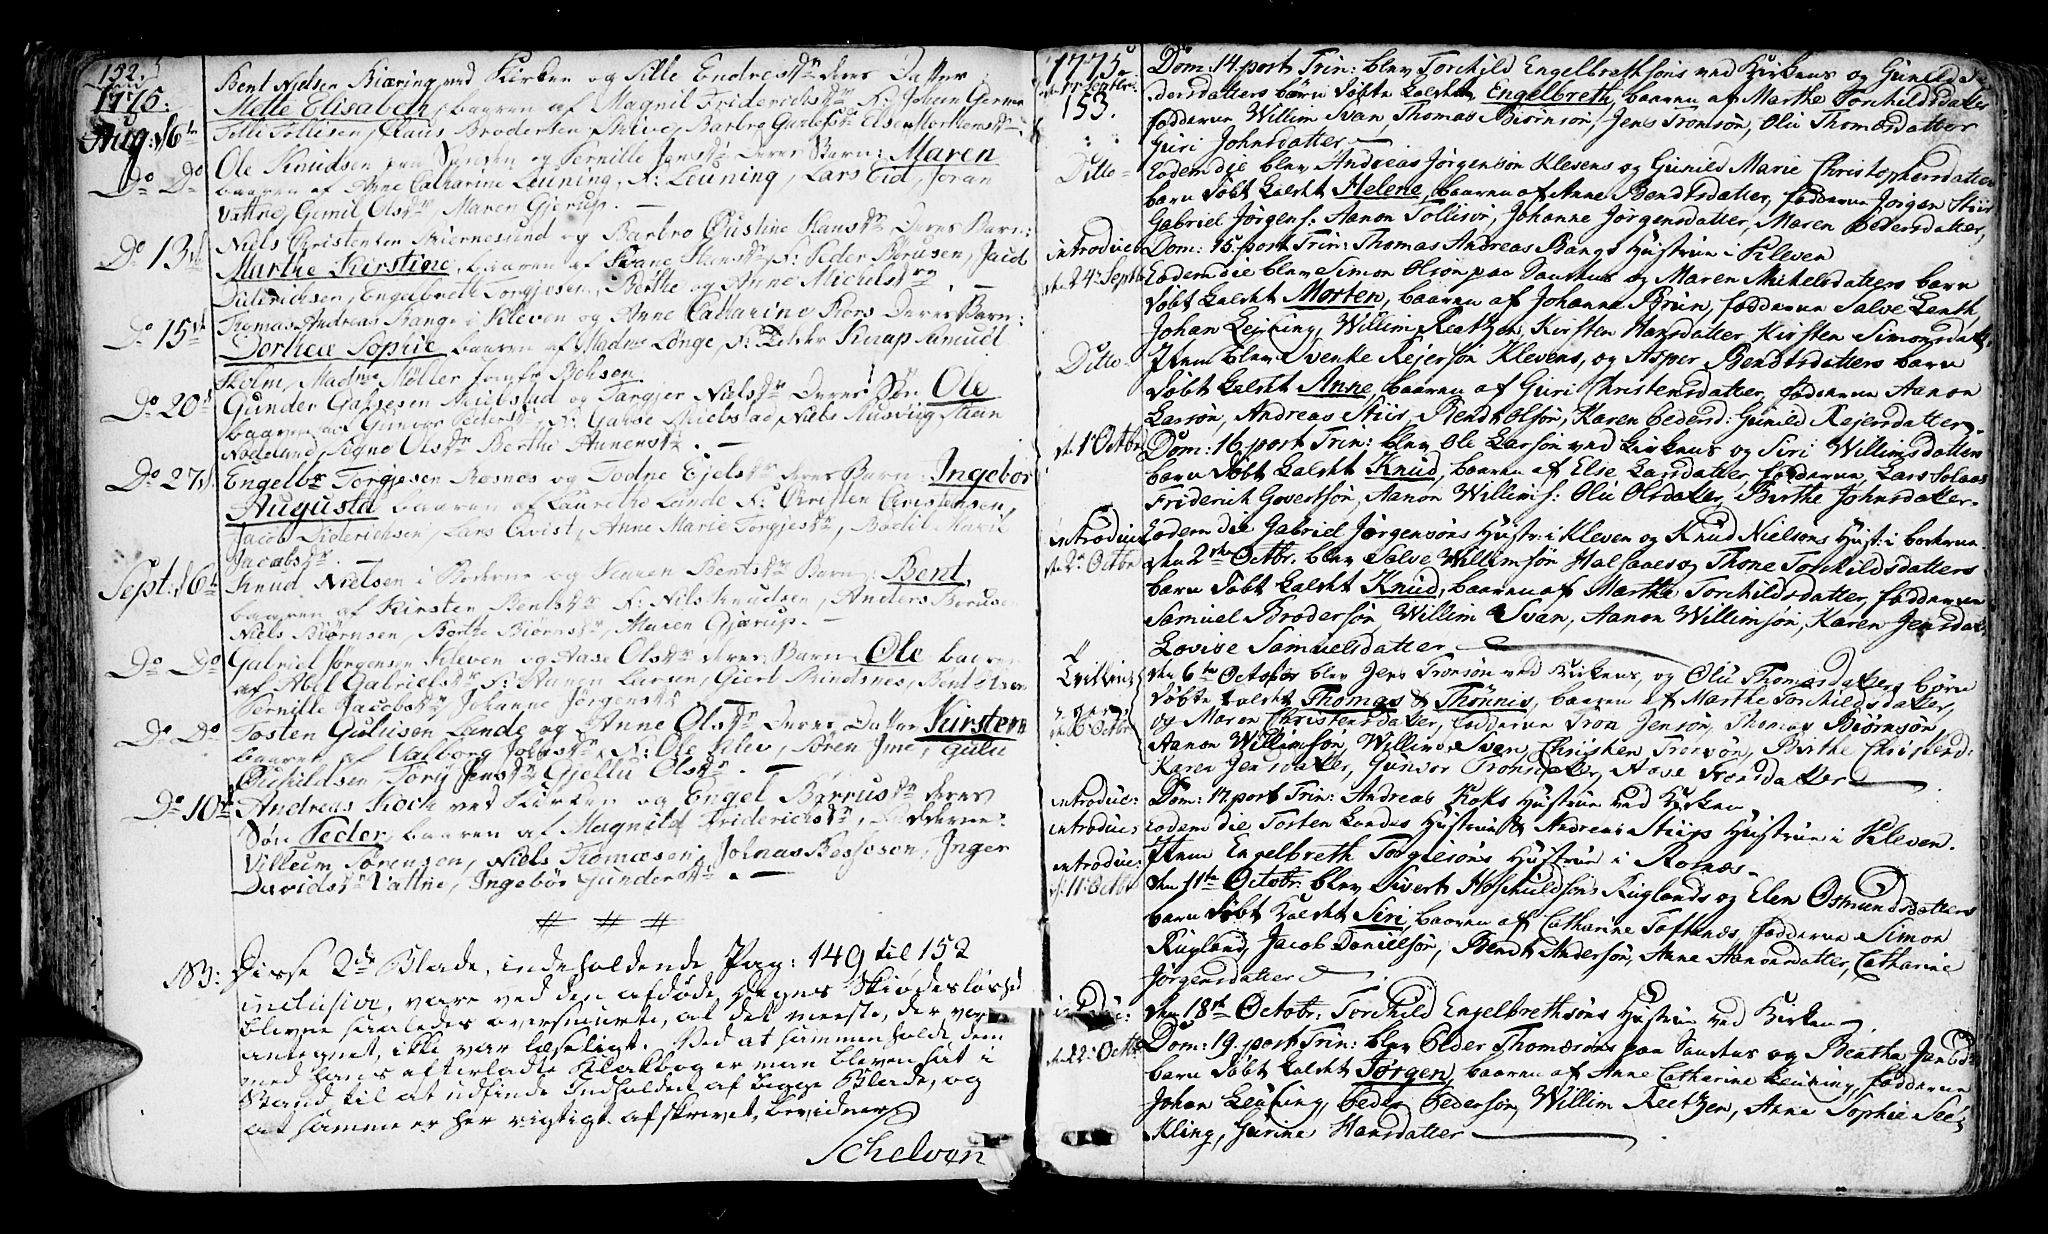 152.
1775.
Aug: 6te
Bent Nielsen Biæring ved Kirken og Sille Endresdtr deres Datter
Mette Elisabeth, baaren af Magnil Friderichsdtr F: Johan German
Tolli Tollisen, Claus Brodersen Skive, Barbro Gustafsdr Else Mortensdtr
Do Do
Ole Knudsen paa Sanden og Pernille Jensdtr Deres Barn: Maren
baaren af Anne Catharine Leuning, F: Leuning, Lars Eid, Joran
Vattne, Gemil Olsdr Maren Gjerup. —
Do 13de
Niels Christensen Skiernesund og Barbro Christine Hansdtr, Deres Barn:
Marthe Kirstine, baaren af Svane Hansdtr F: Peder Børusen, Jacob
Diderichsen, Engelbreth Torgjesen, Berthe og Anne Michelsdtr. —
Do 15de
Thomas Andreas Bange i Kleven og Anne Catharine Rørs Deres Barn:
Dorthea Sophie baaren af Madme Lønge, F: Elder Knap Samuel
Holm, Madme Møller Jomfr Bohsen
Do 20de
Gunder Gahsesen Skiebstad og Targjer Nielsdtr Deres Søn Ole
baaren af Gunvor Pedersdtr, F: Gahse Skiebstad, Niels Stusvig Stein
Nodeland, Signe Olsdtr Berthe Aanensdtr. —
Do 27de
Engelbr Torgjesen Rosnes og Todne Ejelsdtr deres Barn: Ingebor
Augusta baaren af Laurethe Lande F: Christen Christensen,
Jacob Diderichsen, Lars Qvist, Anne Marie Torgjesdtr, Bodil Marie
Jacobsdtr. —
Sept: 6te
Knud Nielsen i Boderne og Karen Bentsdtr Barn: Bent,
baaren af Kirsten Bentsdtr F: Nils Knudsen, Anders Børusen
Niels Biørnsen, Berthe Biørnsdtr, Maren Gjærup. —
Do Do
Gabriel Jørgensen Kleven og Aase Olsdtr deres Barn: Ole baaren
af Abel Gabrielsdtr F: Aanen Larsen, Giert Rindsnes, Bent Olsen
Pernille Jacobsdtr Johanne Jørgensdtr
Do Do
Tosten Gulufsen Lande og Anne Olsdtr Deres Datter Kirsten
baaren af Valborg Johnsdtr F: Ole Klev, Søren Ime, Gulu
Ouhildsen Torij Jensdtr Gjellu Olsdtr. —
Do 10de
Andreas Koch ved Kirken og Engel Børrusdtr deres
Søn Peder, baaren af Magnild Friderichsdtr, Fadderne:
Villum Sørensen, Niels Thomæsen, Johnas Bessesen, Inger
Davidsdtr Vattne, Ingebor Gundersdtr. —
# # #
NB: Disse 2de Blade, indeholdende Pag: 149 til 152
inclusive, vare ved den afdøde Hagens Skiødesløshed
blevne saaledes oversmurte, at det meeste, der var
antegnet, ikke var læseligt. Ved at sammenholde dem
med hans efterladte Kladbog er man bleven sat i
Stand til at udfinde Indholden af begge Blade, og
at samme er her rigtigt afskrevet, bevidner
Schelven
1775
den 17 Septbr:
153.
Dom: 14 post Trin: blev Torchild Engelbrethsøns ved Kirkens og Gunild Pe
dersdatters barn døbt kaldet Engelbreth, baaren af Marthe Torchildsdatter
fadderne Willim Svan, Thomas Biørnsøn, Jens Tronsøn, Olu Thomæsdatter
Guri Johnsdatter —
Ditto
Eodem die blev Andreas Jørgensøn Klevens og Gunild Marie Christophersdatter
barn døbt kaldet Helene, baaren af Anne Bendtsdatter, fadderne Jørgen Stiir
Gabriel Jørgens: Aanon Tollisøn, Johanne Jørgensdatter, Maren Pedersdatter,
introduc:
Dom: 15 post Trin: Thomas Andreas Bangs Hustrue i Kleven
den 24de Septb
Eodem die blev Simon Olsøn paa Sandens og Maren Michelsdatters barn
døbt kaldet Morten, baaren af Johanne Brun, fadderne Salve Lenth,
Johan Leuning, Willim Reetzen, Kirsten Hansdatter, Kirsten Simonsdatt:
Ditto
Item blev Svenke Rejersøn Klevens, og Asper Bendtsdatters barn
døbt kaldet Anne, baaren af Guri Christensdatter, fadderne Aanon
Larsøn, Andreas Stiir, Bendt Olsøn, Karen Pedersd: Gunild Rejersdatter.
d. 1 Octbr
Dom: 16 post Trin: blev Ole Larsøn ved Kirkens og Siri Willimsdatters
barn døbt kaldet Knud, baaren af Else Larsdatter, fadderne Lars Solaas
Friderich Govertsøn, Aanon Willims: Olu Olsdatter, Birthe Johnsdatter —
introduc
Eodem die Gabriel Jørgensøns Hustr: i Kleven og Knud Nielsøns Hust: i boderne
d. 2de Octbr
den 2den Octbr: blev Salve Willimsøn Halsaaes og Thone Torchildsdatters
barn døbt kaldet Knud, baaren af Marthe Torchildsdatter, fadderne
Samuel Brodersøn Willim Svan, Aanon Willimsøn, Karen Jensdatt:
Lovise Samuelsdatter —
Tvillinger
d. 6 Octbr
den 6te October blev Jens Tronsøn ved Kirkens, og Olu Thomæsdatters børn
døbte kaldet Thomas & Thönnis, baaren af Marthe Torchildsdatter,
og Maren Christensdatter, fadderne Tron Jensøn, Thomas Biørnsøn,
Aanon Willimsøn, Willim Svan, Christen Tronsøn, Birthe Christend:
Karen Jensdatter, Gunvor Tronsdatter, Aase Tronsdatter —
introduc:
Dom: 17 post Trin: Andreas Koks Hustrue ved Kirken
introduc:
Eodem die Tosten Landes Hustrue & Andreas Stiirs Hustrue i Kleven.
introduc:
Item Engelbreth Torgiesøns Hustrue i Rosnæs —
d. 11 Octbr
den 11te Octobr: blev Sivert Hofschuldsøns Ruglands og Elen Osmundsdatters
barn døbt kaldet Siri, baaren af Catharine Toftenæs, fadderne Simon
Rugland, Jacob Danielsøn, Bendt Andersøn, Anne Aanonsdatter, Catharine
Jørgensdatter —
introdu:
den 18de Octobr: Torchild Engelbrethsøns Hustrue ved Kirken —
den 22 Octbr
Dom: 19 post Trin: blev Elder Thomæsøns paa Sandens og Beathe Jensd:
barn døbt kaldet Jørgen, baaren af Anne Catharine Leuning, fadderne
Johan Leuning, Peder Pedersøn, Willim Reetzen, Anne Sophie See-
Kling, Gurine Hansdatter —